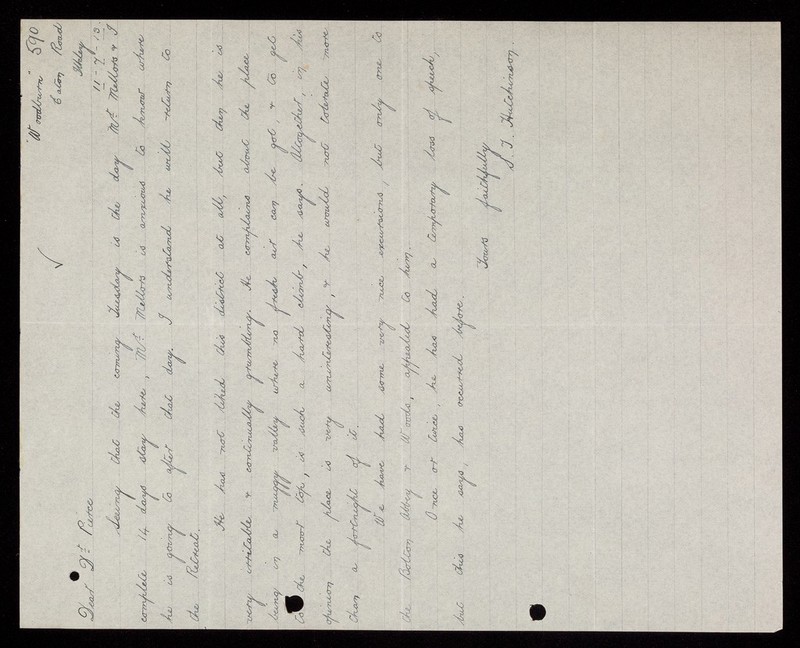 590
"Woodburn"
Eaton Road
Ilkley
11-7-13
Dear Dr. Pierce
Seeing that the coming Tuesday is the day Mr. Mellors & I
complete 14 days stay here, Mr. Mellors is anxious to know where
he is going to after that day. I understand he will return to
the Retreat.
He has not liked this district at all, but then he is
very irritable & continually grumbling. He complains about the place
being in a muggy valley where no fresh air can be got, & to get
to the moor top, is such a hard climb, he says. Altogether, in his
opinion the place is very uninteresting, & he would not tolerate more
than a fortnight of it.
We have had some very nice excursions, but only one to
the Bolton Abbey & Woods, appealed to him.
Once or twice, he has had a temporary loss of speech,
but this he says, has occurred before.
Yours faithfully
S. T. Hutchinson